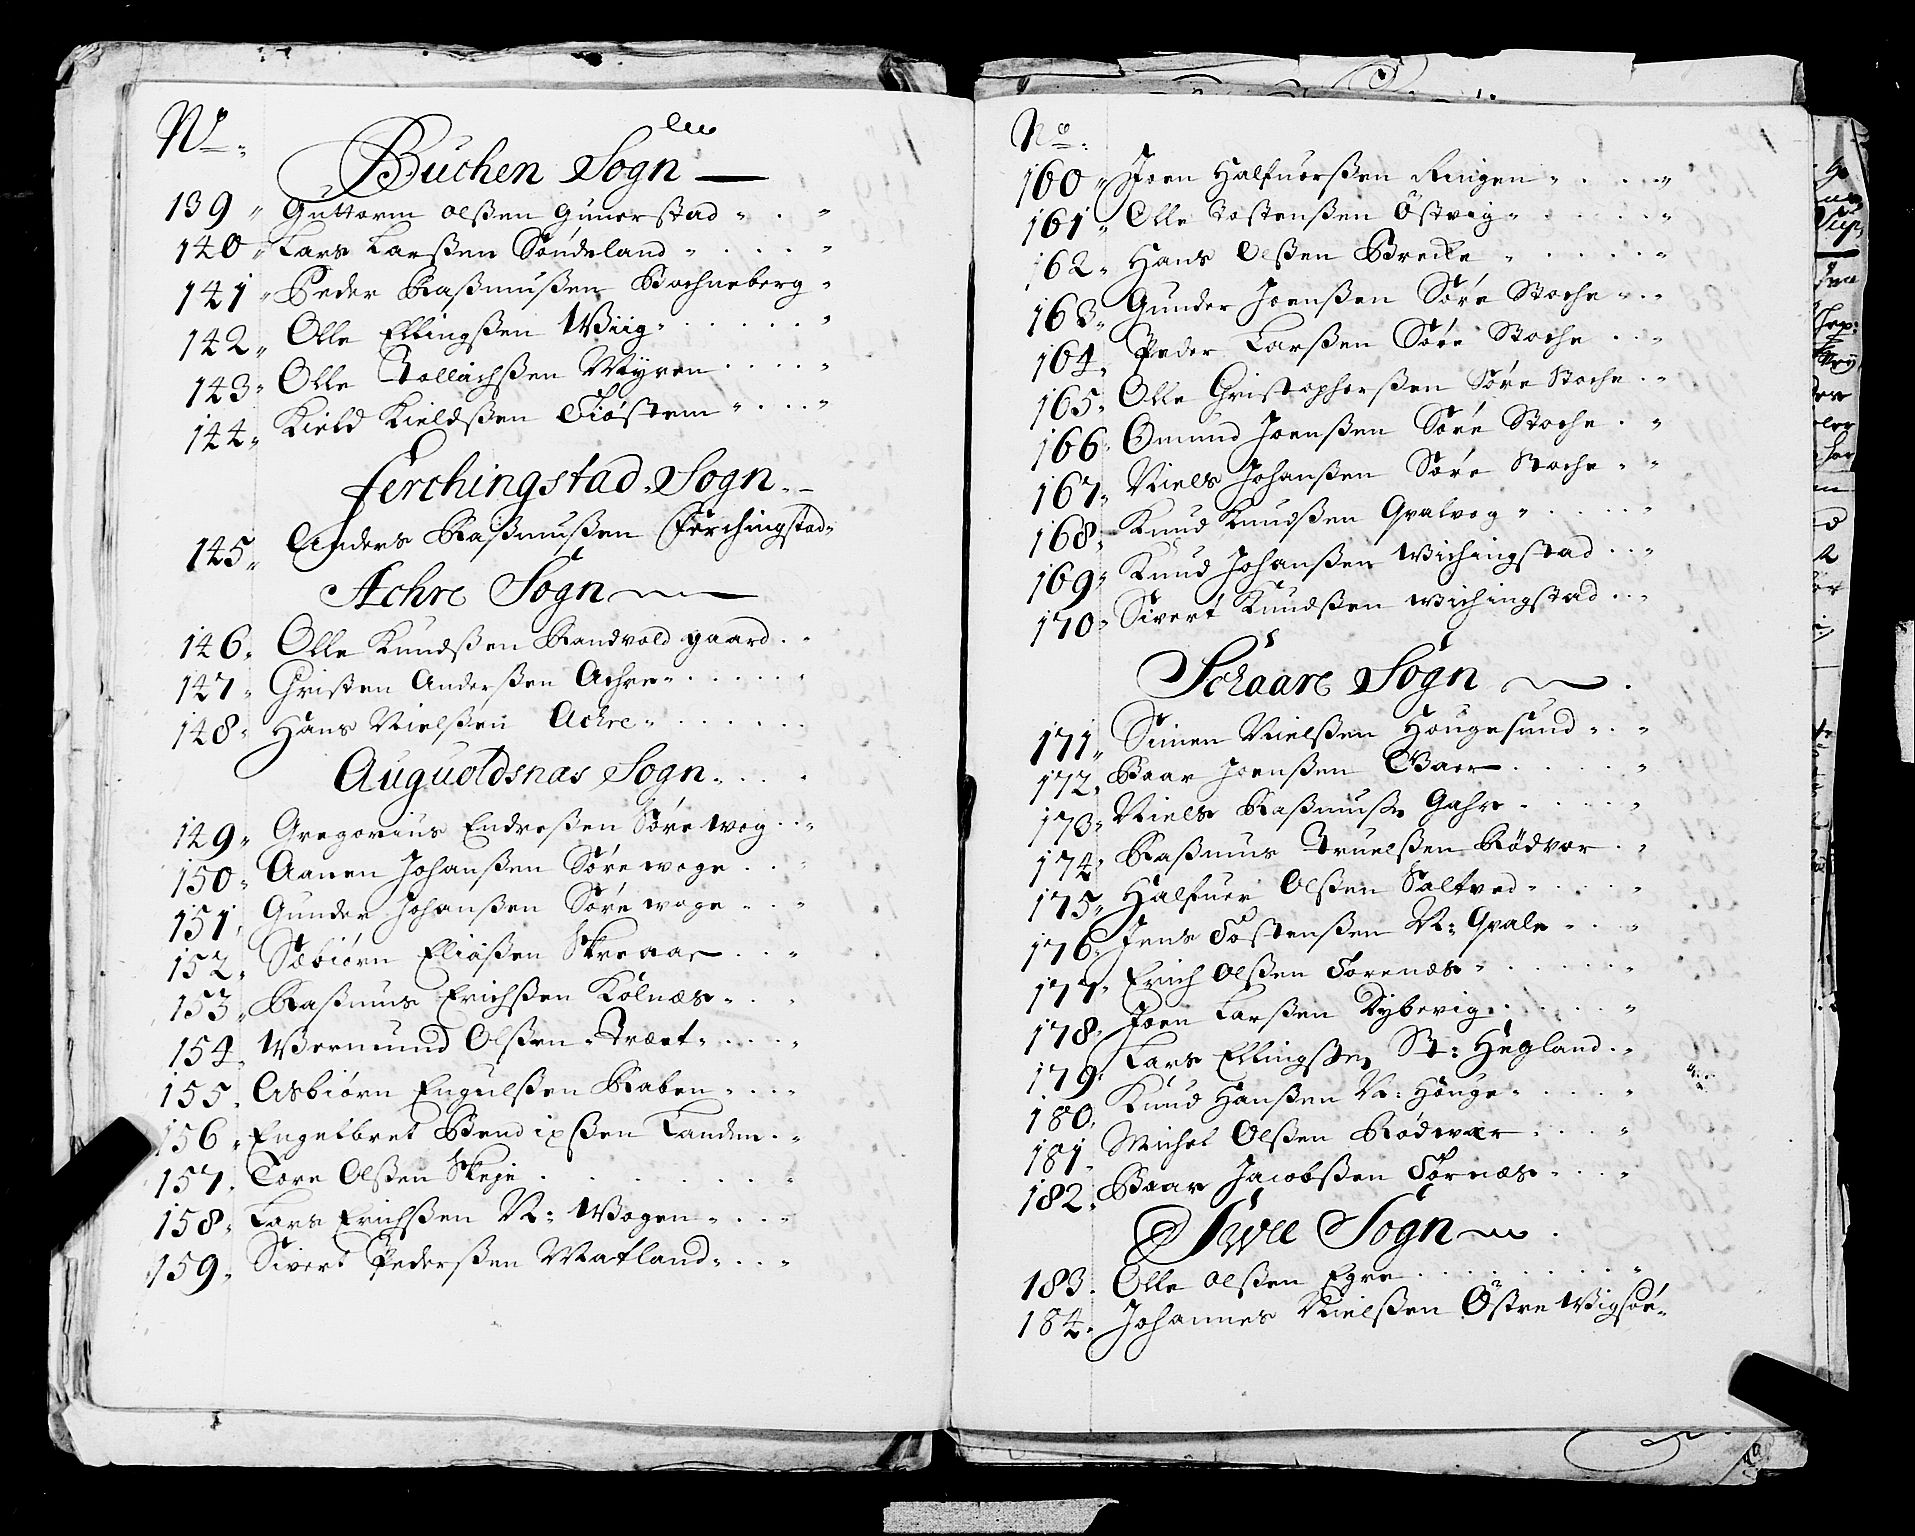 No.
Buchen Sogn
139 Guttorm Olßen Gunerstad
140 Lars Larßen Sündeland
141 Peder Raßmußen Bochneberg
142 Olle Ellingßen Wiig
143 Olle Tollachßen Myren
144 Kield Kieldßen Tiøstem
Ferchingstad Sogn
145 Anders Raßmußen Ferchingstad
Achre Sogn
146 Olle Knudßen Sandvold gaard
147 Christen Anderßen Achre
148 Hans Nielßen Achre
Auguoldsnæs Sogn
149 Gregorius Endreßen Søre Wog
150 Aanen Johanßen Søre woge
151 Gunder Johanßen Søre woge
152 Sæbiørn Eliaßen Skreaar
153 Raßmus Erichßen Kolnæs
154 Wermund Olßen Træet
155 Asbiørn Engulßen Naben
156 Engelbret Bendixßen Landem
157 Tore Olßen Skeje
158 Lars Erichßen N: Wogen
159 Sivert Pederßen Matland
No.
160 Joen Halfuorßen Ringen
161 Olle Tostenßen Østvig
162 Hans Olßen Brecke
163 Gunder Joenßen Søre Stoche
164 Peder Larßen Søre Stoche
165 Olle Christopherßen Søre Stoche
166 Omund Joenßen Søre Stoche
167 Niels Johanßen Søre Stoche
168 Knud Knudßen Qvalvog
169 Knud Johanßen Wichingstad
170 Sivert Knudßen Wichingstad
Schaare Sogn
171 Simen Nielßen Hougesund
172 Baar Joenßen
173 Niels Raßmusß: Gahre
174 Raßmus Truelßen Rødvær
175 Halfuer Olßen Saltved
176 Jens Tostenßen N: Qvale
177 Erich Olßen Forenæs
178 Joen Larßen Dybevig
179 Lars Ellingßen St: Hegland
180 Knud Hanßen N: Houge
181 Michel Olßen Rødwær
182 Baar Jacobßen Førnæs
Sogn
183 Olle Olßen Egre
184 Johannes Nielßen Østre Wigsøe